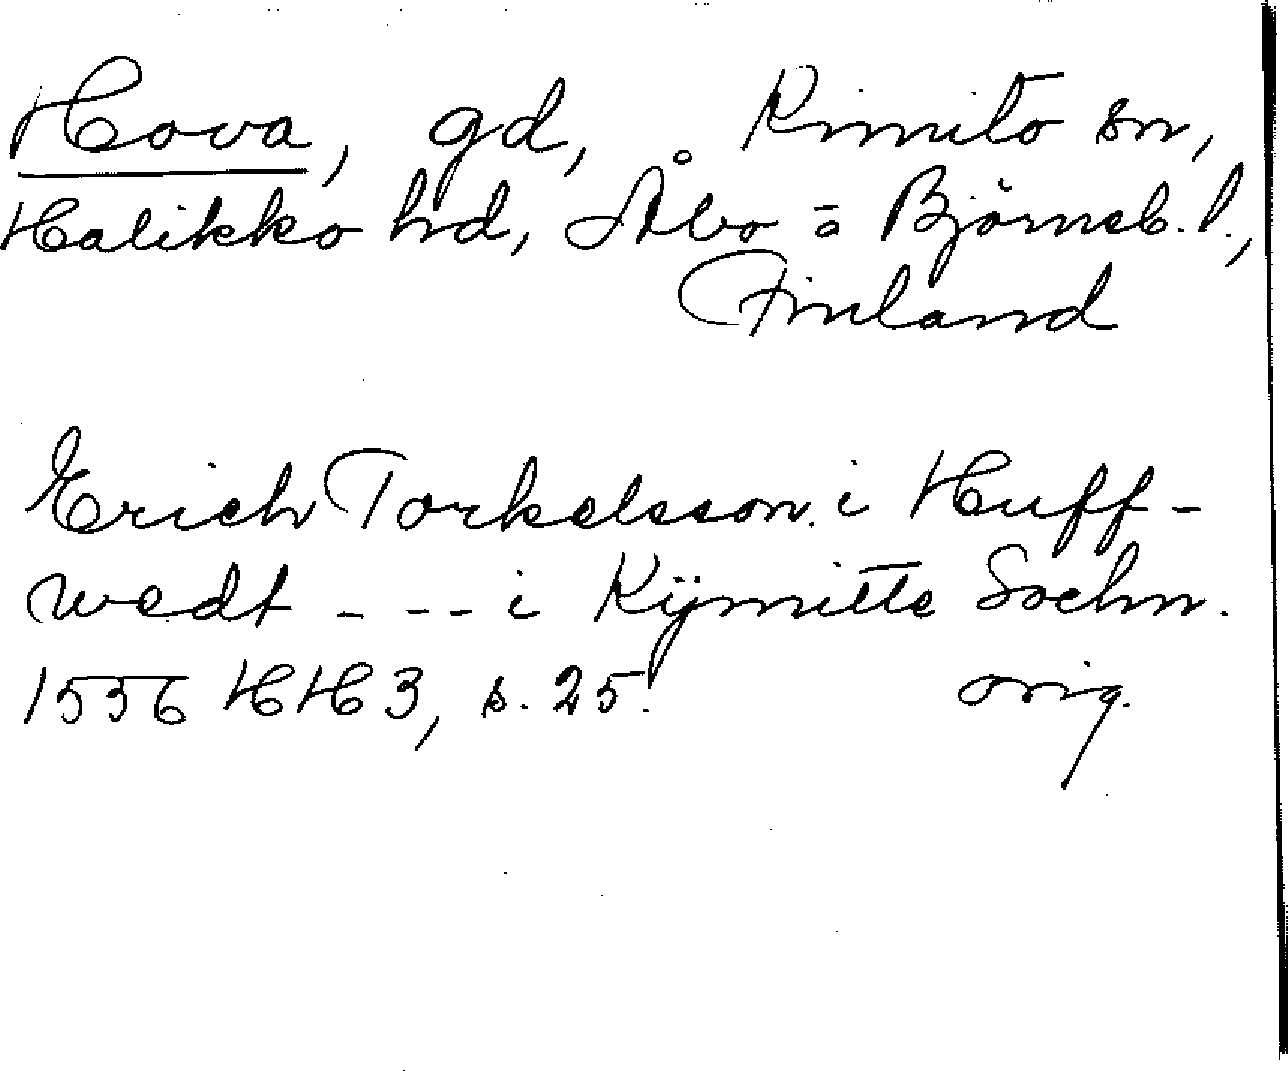 Hova, gd, Rimito sn,
Halikko hd, Åbo = Björneb. l.,
Finland
Erich Torkelsson i Huff-
wedt - - - i Kÿmitte Sochn.
1556 HH 3, s. 25. orig.